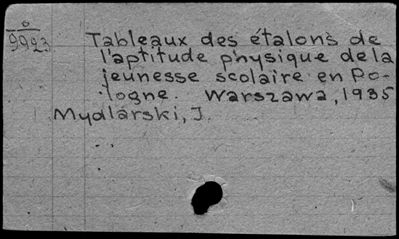 o
9923
Tableaux des étalons de
l'aptitude physique de la
jeunesse scolaire en Po-
logne. Warszawa, 1935
Mydlarski, J.